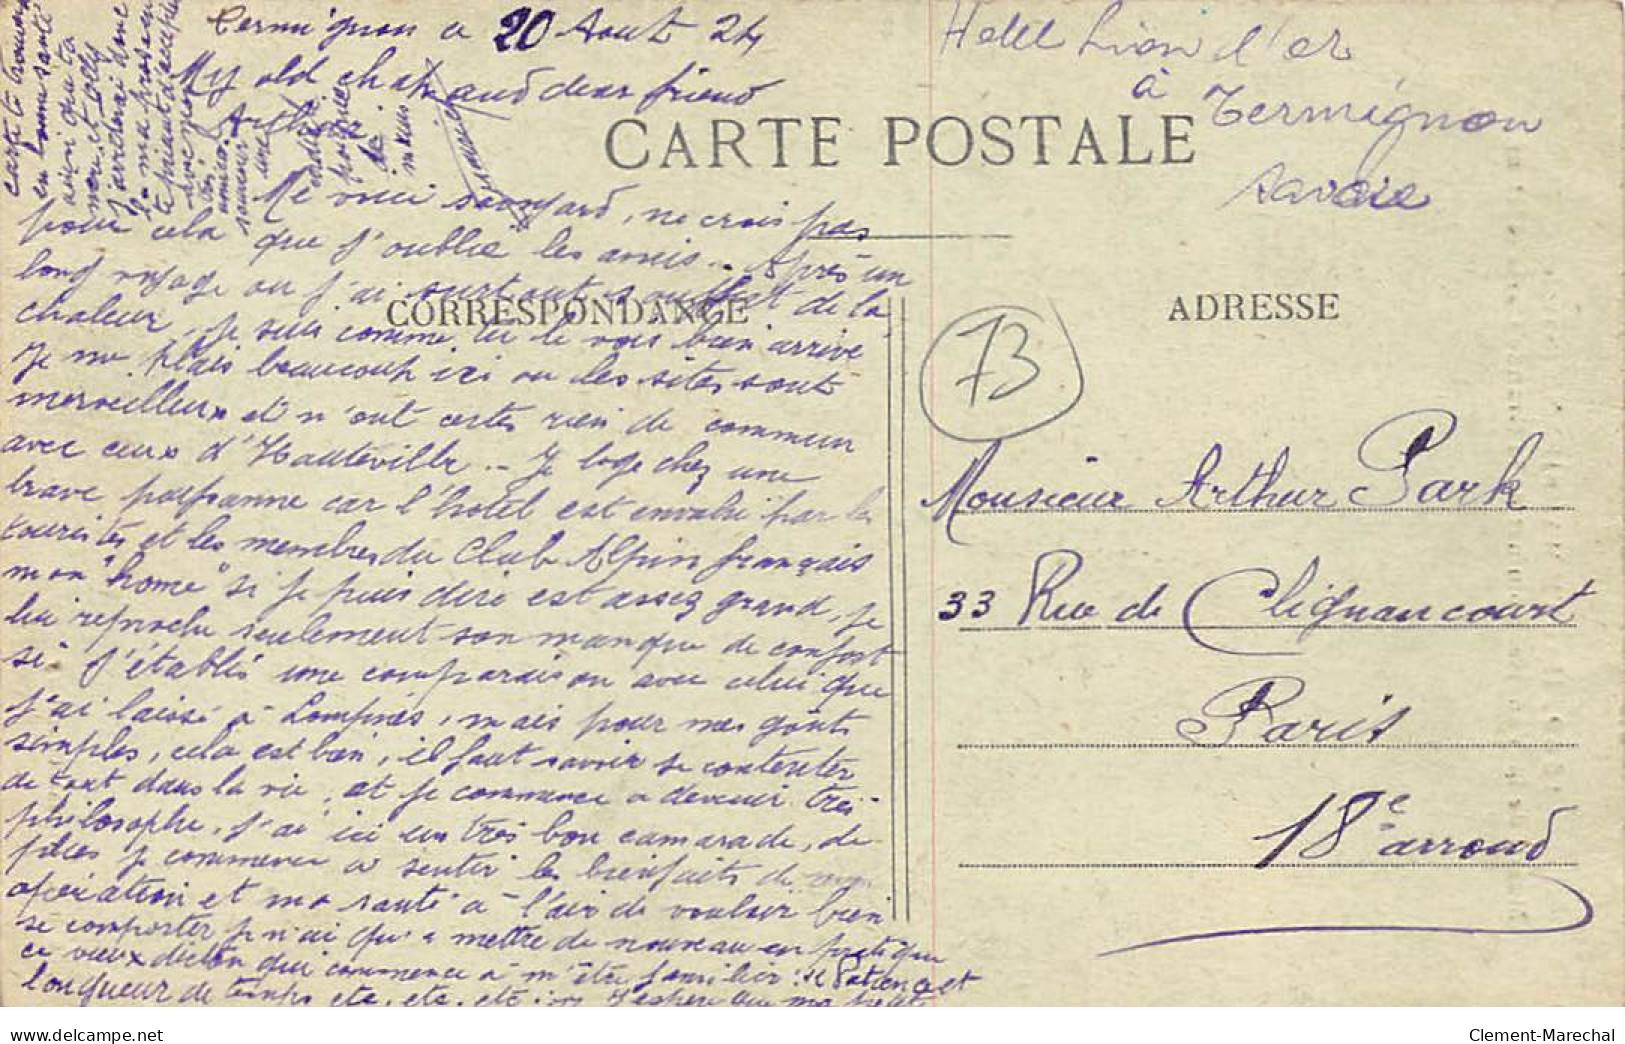 Termignon a 20 Aout 24
My old chap and dear friend
Arthur
Me voici savoyard, ne crois pas
pour cela que j'oublie les amis.. Après un
long voyage ou j'ai surtout souffert de la
chaleur, je suis comme tu le vois bien arrivé
Je me plais beaucoup ici ou les sites sont
merveilleux et n'ont certes rien de commun
avec ceux d'Hauteville.. Je loge chez une
brave paysanne car l'hotel est envahi par les
touristes et les membres du Club Alpin français
mon "home" si je puis dire est assez grand, je
lui reproche seulement son manque de confort
si j'établis une comparaison avec celui que
j'ai laissé à Lompnes, mais pour mes goûts
simples, cela est bien, il faut savoir se contenter
de tout dans la vie, et je commence a devenir très
philosophe, j'ai ici un très bon camarade, de
plus je commence a sentir les bienfaits de mon
opération et ma santé à l'air de vouloir bien
se comporter je n'ai qu'a mettre de nouveau en pratique
ce vieux dicton qui commence à m'être familier : "Patience et
longueur de temps etc, etc, etc J'espère que ma
carte te trouvera
en bonne santé
ainsi que ta
mère et Lolly
j'arrêterai donc
la ma prose en
te priant d'accepter
avec mon
souvenir
une
poignée
de
mains
CARTE POSTALE
CORRESPONDANCE
ADRESSE
Hotel Lion d'or
à Termignon
Savoie
73
Monsieur Arthur Park
33 Rue de Clignancourt
Paris
18e arrond
delcampe.net
Clement-Marechal